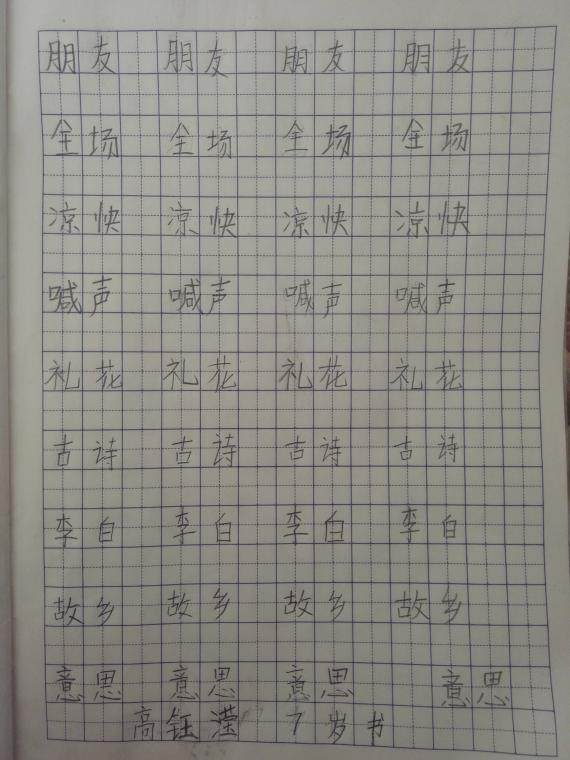 朋友 朋友 朋友 朋友
全场 全场 全场 全场
凉快 凉快 凉快 凉快
喊声 喊声 喊声 喊声
礼花 礼花 礼花 礼花
古诗 古诗 古诗 古诗
李白 李白 李白 李白
故乡 故乡 故乡 故乡
意思 意思 意思 意思
高钰滢 7岁书